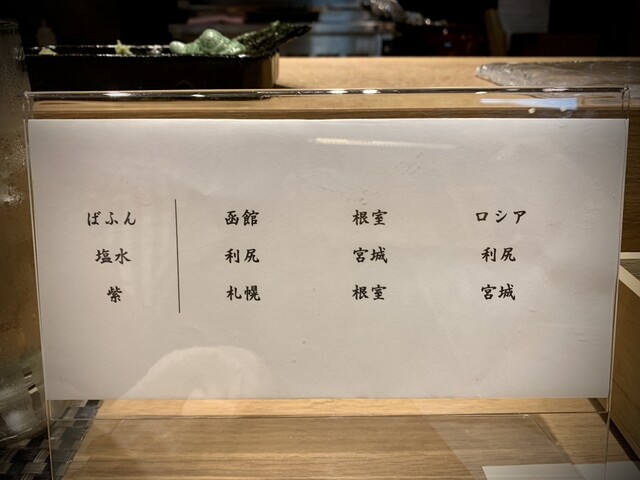 ばふん 函館 根室 ロシア
塩水 利尻 宮城 利尻
紫 札幌 根室 宮城